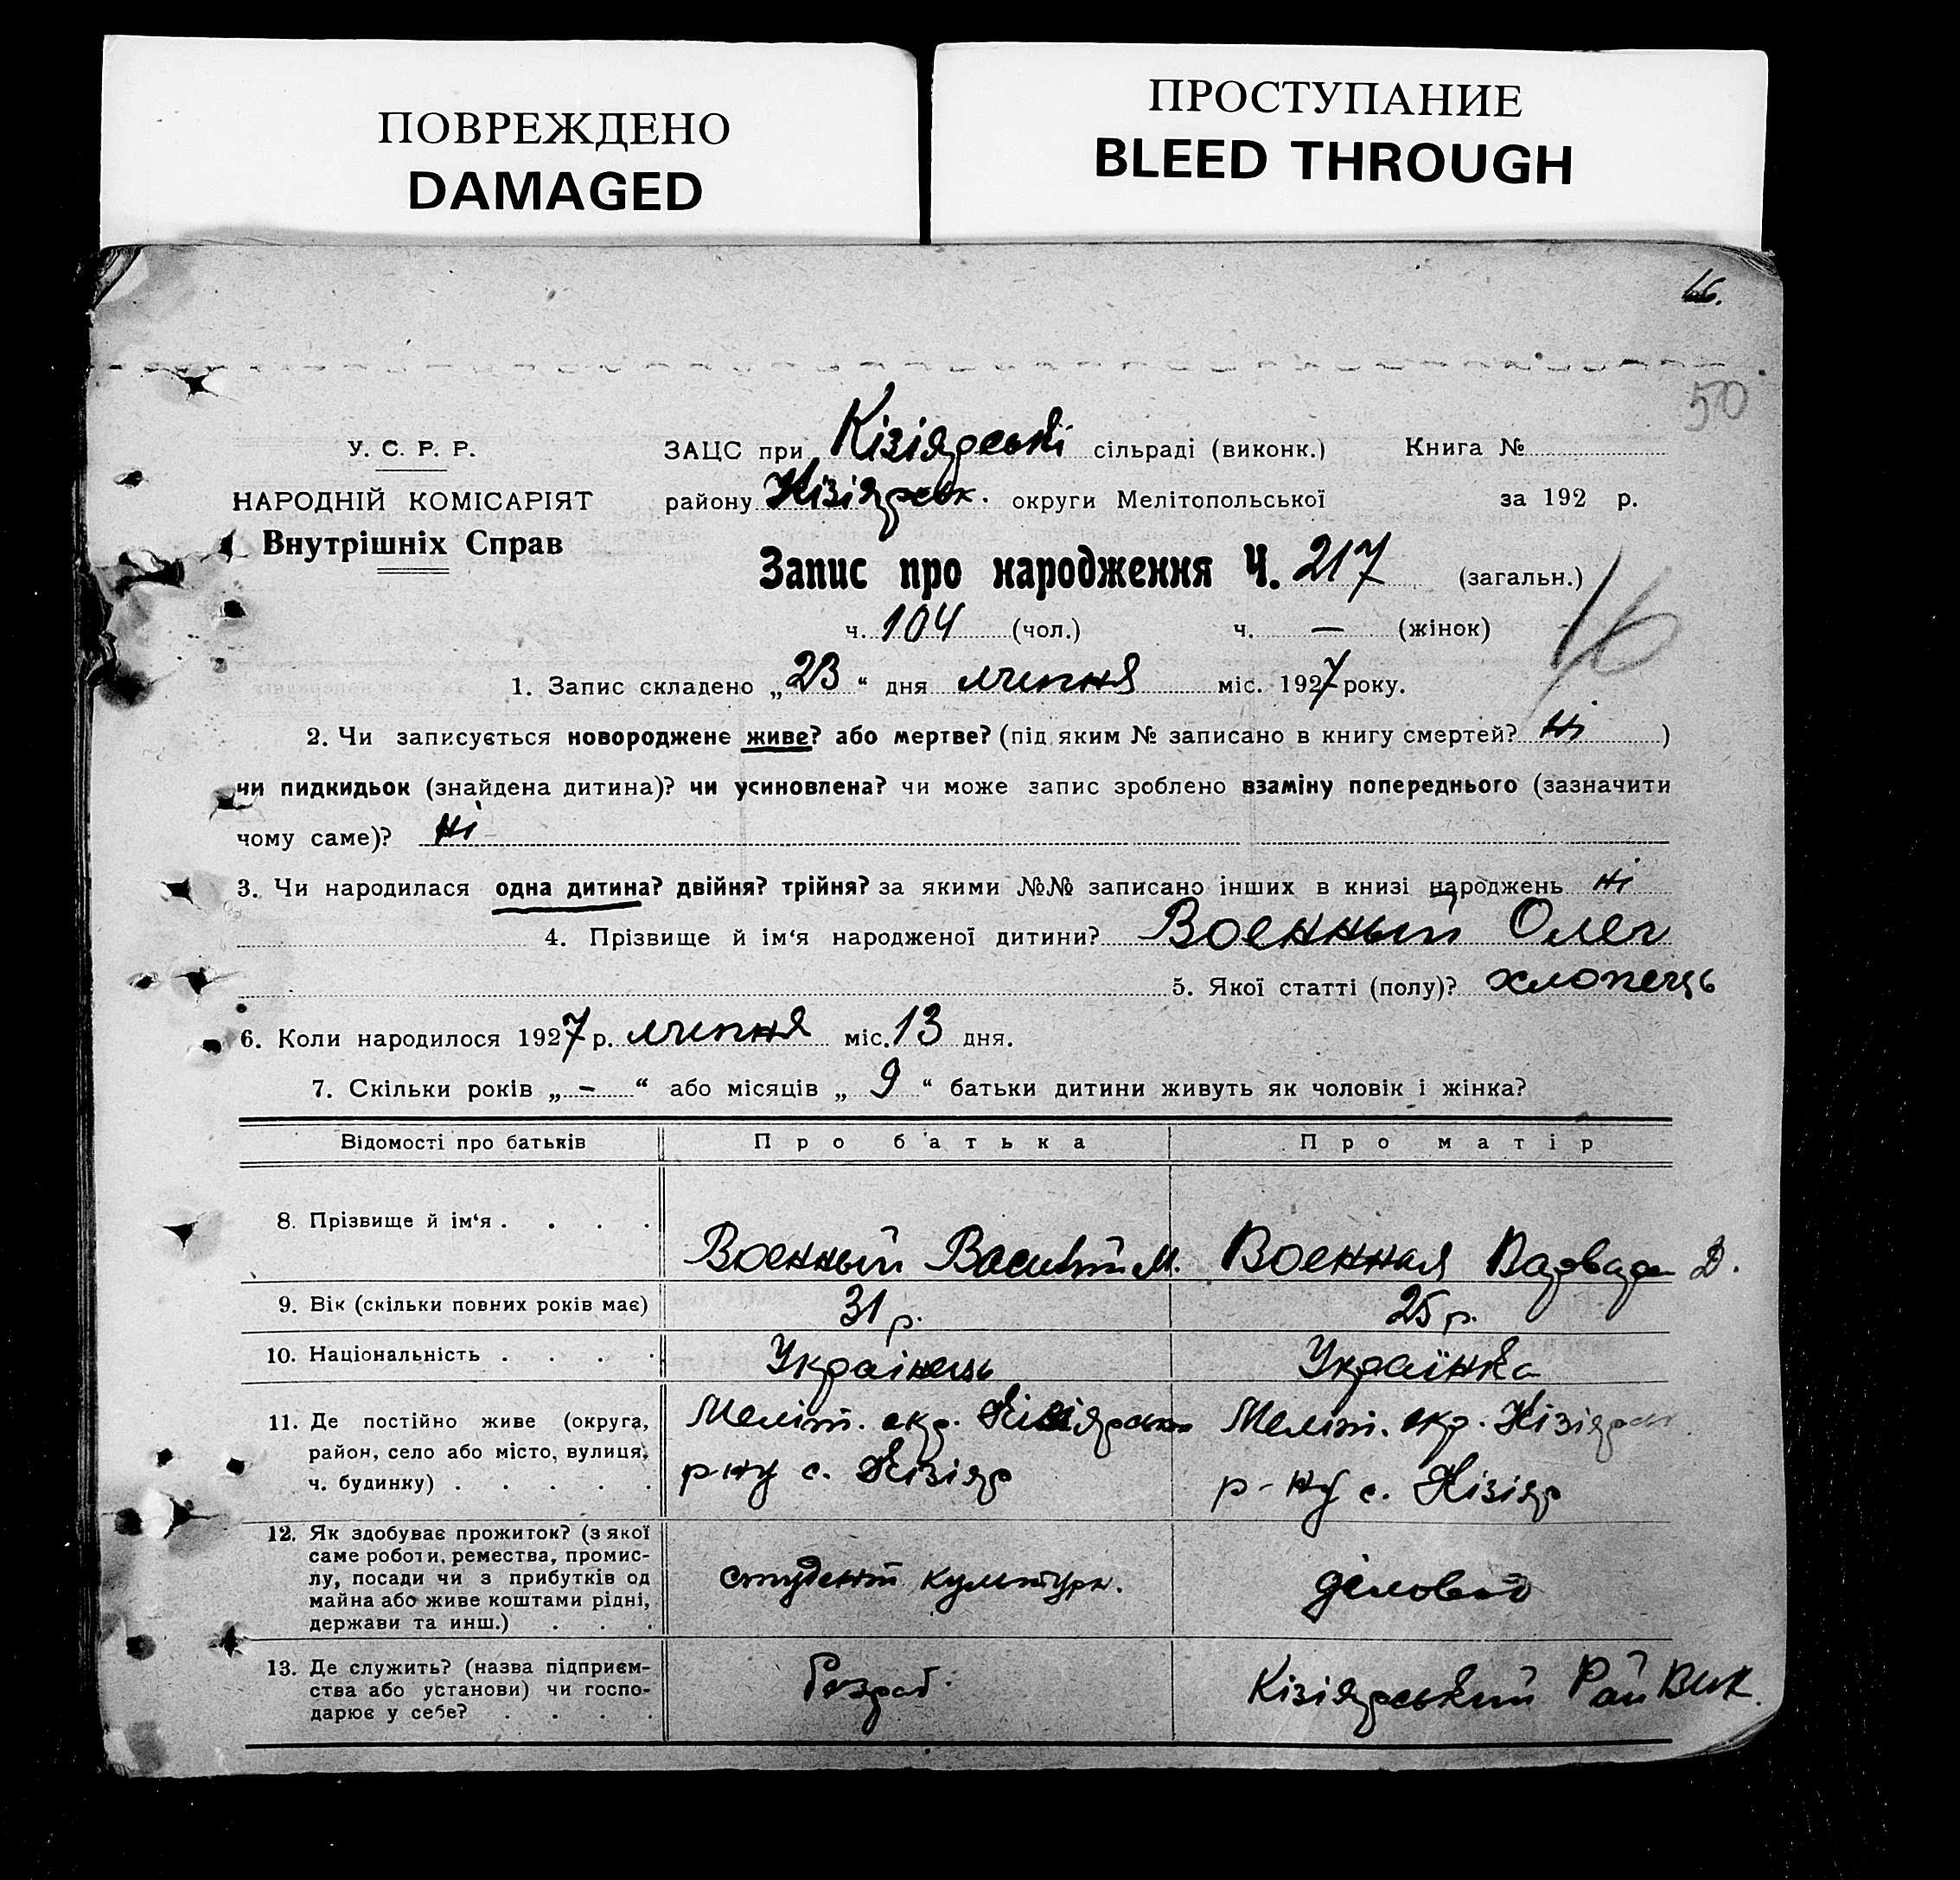 ПОВРЕЖДЕНО
DAMAGED
ПРОСТУПАНИЕ
BLEED THROUGH
50
У. С. Р. Р.
НАРОДНІЙ КОМІСАРІЯТ
Внутрішніх Справ
ЗАЦС при Кізіярські сільраді (виконк.) Книга №
району Кізіярськ. округи Мелітопольської за 192 р.
Запис про народження Ч. 217 (загальн.)
16
ч. 104 (чол.) ч. — (жінок)
1. Запис складено „23“ дня липня міс. 1927 року.
2. Чи записується новороджене живе? або мертве? (під яким № записано в книгу смертей? Ні )
чи пидкидьок (знайдена дитина)? чи усиновлена? чи може запис зроблено взаміну попереднього (зазначити
чому саме)? Ні
3. Чи народилася одна дитина? двійня? трійня? за якими №№ записано інших в книзі народжень ні
4. Прізвище й ім‘я народженої дитини? Военный Олег
5. Якої статті (полу)? хлопець
6. Коли народилося 1927 р. липня міс. 13 дня.
7. Скільки років „ – “ або місяців „ 9 “ батьки дитини живуть як чоловік і жінка?
Відомості про батьків Про батька Про матір
8. Прізвище й ім‘я . . . . Военный Василий М. Военная Варвара Д.
9. Вік (скільки повних років має) 31 р. 25 р.
10. Національність . . . . Українець Українка
11. Де постійно живе (округа,
район, село або місто, вулиця,
ч. будинку) . . . . .
Меліт. окр. Кізіярськ
р-ну с. Кізіяр
Меліт. окр. Кізіярськ
р-ну с. Кізіяр
12. Як здобуває прожиток? (з якої
саме роботи, ремества, промис-
лу, посади чи з прибутків од
майна або живе коштами рідні,
держави та инш.) . . .
студент культурн.
13. Де служить? (назва підприєм-
ства або установи) чи госпо-
дарює у себе? . . . .
Кізіярський РайВик.